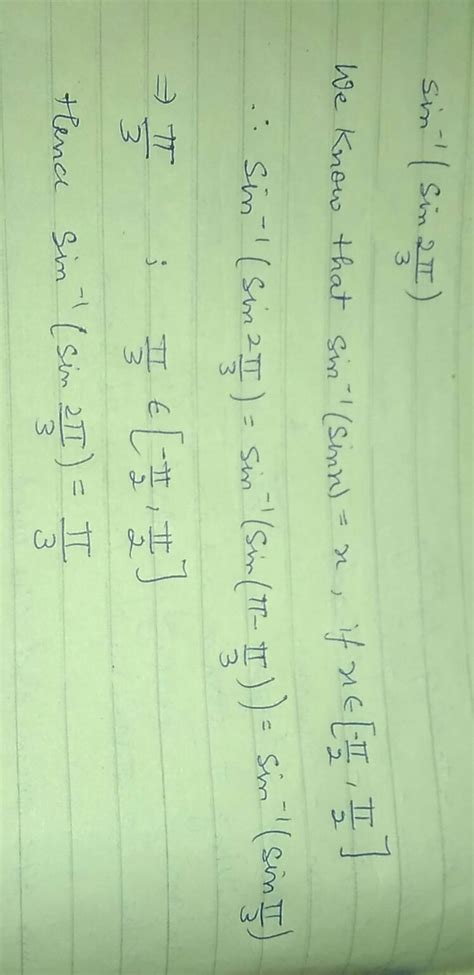 sin⁻¹(sin 2π/3)
We know that sin⁻¹(sin x) = x, if x ∈ [-π/2, π/2]
∴ sin⁻¹(sin 2π/3) = sin⁻¹(sin(π - π/3)) = sin⁻¹(sin π/3)
⇒ π/3 ; π/3 ∈ [-π/2, π/2]
Hence sin⁻¹(sin 2π/3) = π/3